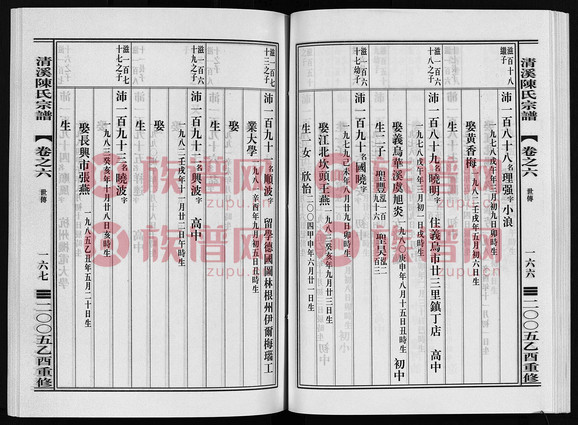 清溪陳氏宗譜
卷之六 世傳
一六六
二〇〇五乙酉重修
滋一百十八
繼子
沛一百八十八 名理强 字小浪
一九七八戊午年三月初九日卯時生
娶黄香梅 一九八二壬戌年五月初六日生
生
滋一百六
十八之子
沛一百八十九 名義明 字 住義烏市廿三里鎮丁店 高中
一九七八戊午年三月初一日戌時生
娶義烏華溪虞旭炎 一九八〇庚申年八月十五日丑時生 初中
生二子 聖豐 沆一百九十六 聖昊 沆二百三
滋一百六
十七幼子
沛一百九十 名國曉 字
一九七九己未年八月廿九日卯時生
娶江北坎頭王燕 一九八一辛酉年八月廿三日生 初中
生一女 欣怡 二〇〇四甲申年六月廿一日生
滋一百七
十三之子
沛一百九十一 名順波 字 留學德國圖林根州伊爾梅瑙工
業大學 一九八一辛酉年九月初五日丑時生
娶
生
滋一百六
十九之子
沛一百九十二 名興波 字 高中
一九八二壬戌年二月廿二日午時生
娶
生
滋一百六
十七之子
沛一百九十三 名曉波 字
一九八三癸亥年十月廿八日亥時生
娶長興市張燕 一九八五乙丑年五月二十日生
生
清溪陳氏宗譜
卷之六 世傳
一六七
二〇〇五乙酉重修
族谱网
zupu.cn
族谱网
zupu.cn